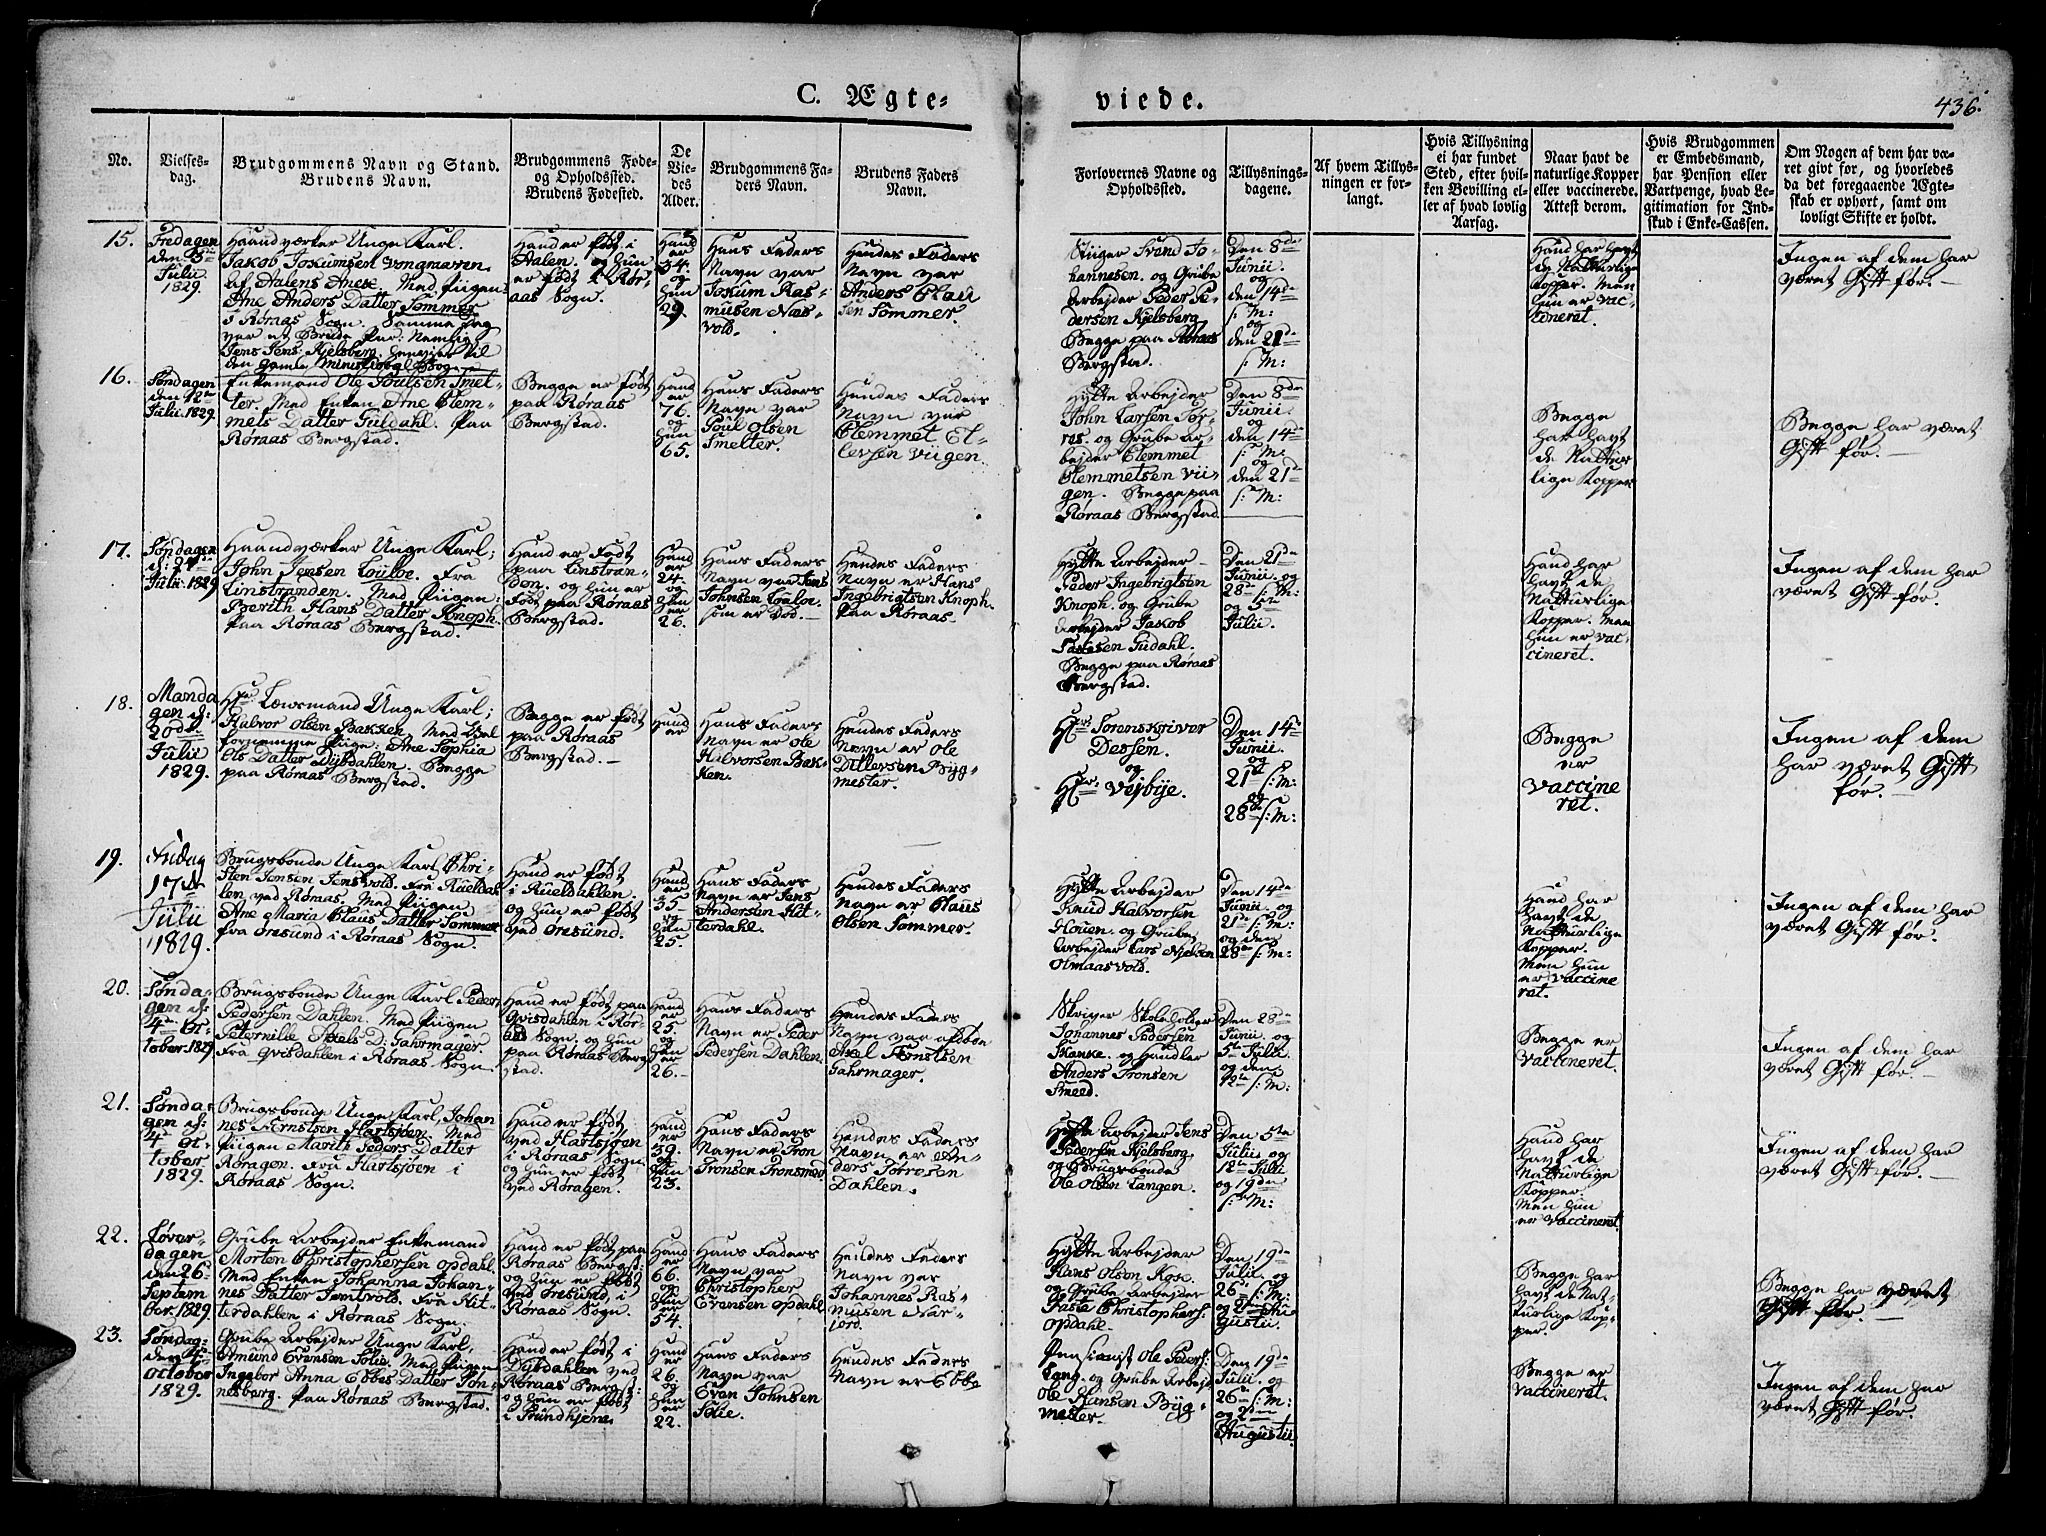 C. Ægte-
viede.
436.
No.
Vielses-
dag.
Brudgommens Navn og Stand.
Brudens Navn.
Brudgommens Føde-
og Opholdssted.
Brudens Fødested.
De
Vie-
des
Alder.
Brudgommens Fa-
ders Navn.
Brudens Faders
Navn.
Forlovernes Navne og
Opholdssted.
Tillysnings-
dagene.
Af hvem Tillys-
ningen er for-
langt.
Hvis Tillysning
ei har fundet
Sted, efter hvil-
ken Bevilling el-
ler af hvad lovlig
Aarsag.
Naar havt de
naturlige Kopper
eller vaccinerede.
Attest derom.
Hvis Brudgommen
er Embedsmand,
har Pension eller
Vartpenge, hvad Le-
gitimation for Ind-
skud i Enke-Cassen.
Om Nogen af dem har væ-
ret givt før, og hvorledes
da det foregaaende Ægte-
skab er ophørt, samt om
lovligt Skifte er holdt.
15.
Fredagen
Julii
1829.
Haandværker Unge Karl.
Jakob Jokumsen Vongraven.
af Aalens Anex. Med Piigen
Ane Anders Datter Sommer
i Røraas Sogn. Samme Dag
var et Brude Par: Nemlig
Jens Jens: Kjelsberg. henviser til
den gamle Ministerial Bog.
Hand er født i
Aalen. og hun
er født i Rør-
aas Sogn.
Hand
er
34.
og
hun
29.
Hans Faders
Navn var
Jokum Ras-
musen Næs-
vold.
Hendes Faders
Navn var
Anders Clau
sen Sommer
Stiiger Svend Jo-
hannesen. og Grube
Arbejder Peder Pe-
dersen Kjelsberg
Begge paa Røraas
Bergstad.
Den 8de
Junii.
og
den 14de
s: M:
og
den 21de
s: M:
Hand har havt
de Natturlige
Kopper. Men
hun er Vac-
cineret.
Ingen af dem har
været Gift før.
16.
Søndagen
den 12te
Julii. 1829.
Enkemand Ole Poulsen Smel-
ter. Med Enken Ane Clem-
mets Datter Guldahl. Paa
Røraas Bergstad.
Begge er født
paa Røraas
Bergstad.
Hand
er
76.
og
hun
65.
Hans Faders
Navn var
Poul Olsen
Smelter.
Hendes Faders
Navn var
Clemmet El-
levsen Viigen.
Hytte Arbejder
John Larsen Tor-
res. og Grube Ar-
bejder Clemmet
Clemmetsen Vii-
gen. Begge paa
Røraas Bergstad.
Den 8de
Junii.
og
den 14de
s: M:
og
den 21de
s: M:
Begge
har havt
de Nattur
lige Kopper
Begge har været
Gift før.
17.
Søndagen
Julii. 1829
Haandværker Unge Karl;
John Jensen Loüloe. Fra
Linstranden. Med Piigen:
Berith Hans Datter Knoph.
Paa Røraas Bergstad.
Hand er Født
paa Linstran-
den. og hun er
Født paa Røraas
Bergstad.
Hand
er
24.
og
hun
er
26.
Hans Faders
Navn var Jens
Johnsen Loüloe.
som er Død.
Hendes Faders
Navn er Hans
Ingebrigtsen Knoph.
Paa Røraas.
Hytte Arbejder
Peder Ingebrigtsen
Knoph. og Grube
Arbejder Jakob
Gudahl.
Begge paa Røraas
Bergstad.
Den 21de
Junii. og
28de s: M:
og 5te
Julii.
Hand har
havt de
Natturlige
Kopper. Men
hun er Vac-
cineret.
Ingen af dem har
været Gift før.
18.
Manda
gen d:
20de
Julii
1829.
Hr Lensmand Unge Karl;
Halvor Olsen Bakken. Med Vel
fornemme Piige. Ane Sophia
Ols Datter Dybdahlen. Begge
paa Røraas Bergstad.
Begge er født
paa Røraas
Bergstad.
Hand
er
Hans Faders
Navn er Ole
Halvorsen Bak-
ken.
Hendes Faders
Navn er Ole
Ditlevsen Byg-
mester.
Hr. Sorenskriver
Dessen.
og
Hr. Vejbye.
Den 14de
Junii.
og
21de s: M:
og
28de s: M:
Begge
er
Vaccine
ret.
Ingen af dem
har været Gift
før.
19.
Fridag
17de
Julii
1829.
Brugsbonde Unge Karl Chri-
sten Jensen Jensvold. Fra Rüeldah
len ved Røraas. Med Piigen
Ane Maria Claus Datter Sommer
fra Oresund i Røraas Sogn.
Hand er født
i Rueldahlen.
og hun er født
ved Oresund.
Hand
er
35
og
hun
25.
Hans Faders
Navn er Jens
Andersen Hit-
terdahl.
Hendes Faders
Navn er Claus
Olsen Sommer.
Hytte Arbejder
Knud Halvorsen
Houen. og Grube
Arbejder Lars Nielsen
Olmaasvold.
Den 14de
Junii. og
21de s: M:
og den
28de s: M:
Hand har
havt de
Natturlige
Kopper.
Men hun
er Vaccine
ret.
Ingen af dem har
været Gift før.
20.
Sønda-
gen d:
4de Oc-
tober. 1829
Brugsbonde Unge Karl Peder
Pedersen Dahlen. Med Piigen
Pternille Axels D: Jahrmager.
Fra Qvisdahlen i Røraas Sogn.
Hand er født paa
Qvisdahlen i Rør-
aas Sogn. og hun
paa Røraas Berg
stad.
Hand
er
25.
og
hun
er
26.
Hans Faders
Navn er Peder
Pedersen Dahlen.
Hendes Faders
Navn var afdøde
Axel Ferntsen
Jahrmager.
Skriver Skoleholder
Johannes Pedersen
Skanke. og Handler
Anders Tronsen
Smeed.
Den 28de
Junii. og
5te Julii.
og den
12te s: M:
Begge er
Vaccineret.
Ingen af dem har
været Gift før.
21.
Sønda-
gen d:
4de Oc-
tober
1829.
Brugsbonde Unge Karl, Johan
nes Ferntsen Hartsjøen. Med
Piigen Marith Peders Datter
Røragen. Fra Hartsjøen i
Røraas Sogn.
Hand er født
ved Hartsjøen
i Røraas Sogn
og hun er født
ved Røragen.
Hand
er
39.
og
hun
23.
Hans Faders
Navn er Tron
Tronsen Tronsmed.
Hendes Faders
Navn er An-
ders Torresen
Dahlen.
Hytte Arbejder Jens
Pedersen Kjelsberg,
og Brugsbonde
Ole Olsen Langen.
Den 5te
Julii og
12te Julii
og 19de
s: M:
Hand har
havt de
Natturlige
Kopper.
Men hun
er Vaccineret.
Ingen af dem har
været Gift før.
22.
Løver-
dagen
den 26
Septem
ber. 1829
Grube Arbejder Enkemand
Morten Christophersen Opdahl.
Med Enken Johanna Johan-
nes Datter Tamtvold. Fra Hit-
terdahlen i Røraas Sogn.
Hand er født paa
Røraas Bergst:
og hun er født
ved Oresund, i
Røraas Sogn.
Hand
er
66.
og
hun
er
54.
Hans Faders
Navn var
Christopher
Evensen Opdahl.
Hendes Faders
Navn var
Johannes Ras-
musen Nar-
jord.
Hytte Arbejder
Hans Olsen Kosc.
og Grube Arbejder
Christophers:
Opdahl.
Den 19de
Julii. og
26de s: M:
og 2den Au
gustii.
Begge har
havt de Nat-
turlige Kop-
per.
Begge har været
Gift før.
23.
Søndag:
den 4de
October
1829.
Grube Arbejder Unge Karl,
Amund Evensen Solie. Med Piigen
Ingebor Anna Ebbes Datter Tøn-
nesberg. Paa Røraas Bergstad.
Hand er født i
Dybdahlen ved
Røraas Bergst:
og hun er født
i Trundhjem.
Hand
er
26.
og
hun
er
22.
Hans Faders
Navn var
Even Johnsen
Solie.
Hendes Faders
Navn er Ebbe
Pensionist Ole Peders:
Lang. og Grube Arbejd:
Ole Hansen Byg-
mester.
Den 19de
Julii. og
26de s: M:
og 2den
Augustii.
Begge er
Vaccineret.
Ingen af dem har
været Gift før.